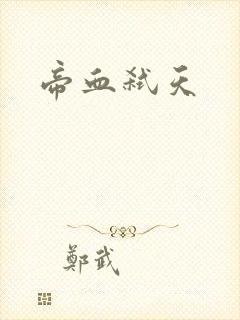 帝血弑天
鄭武